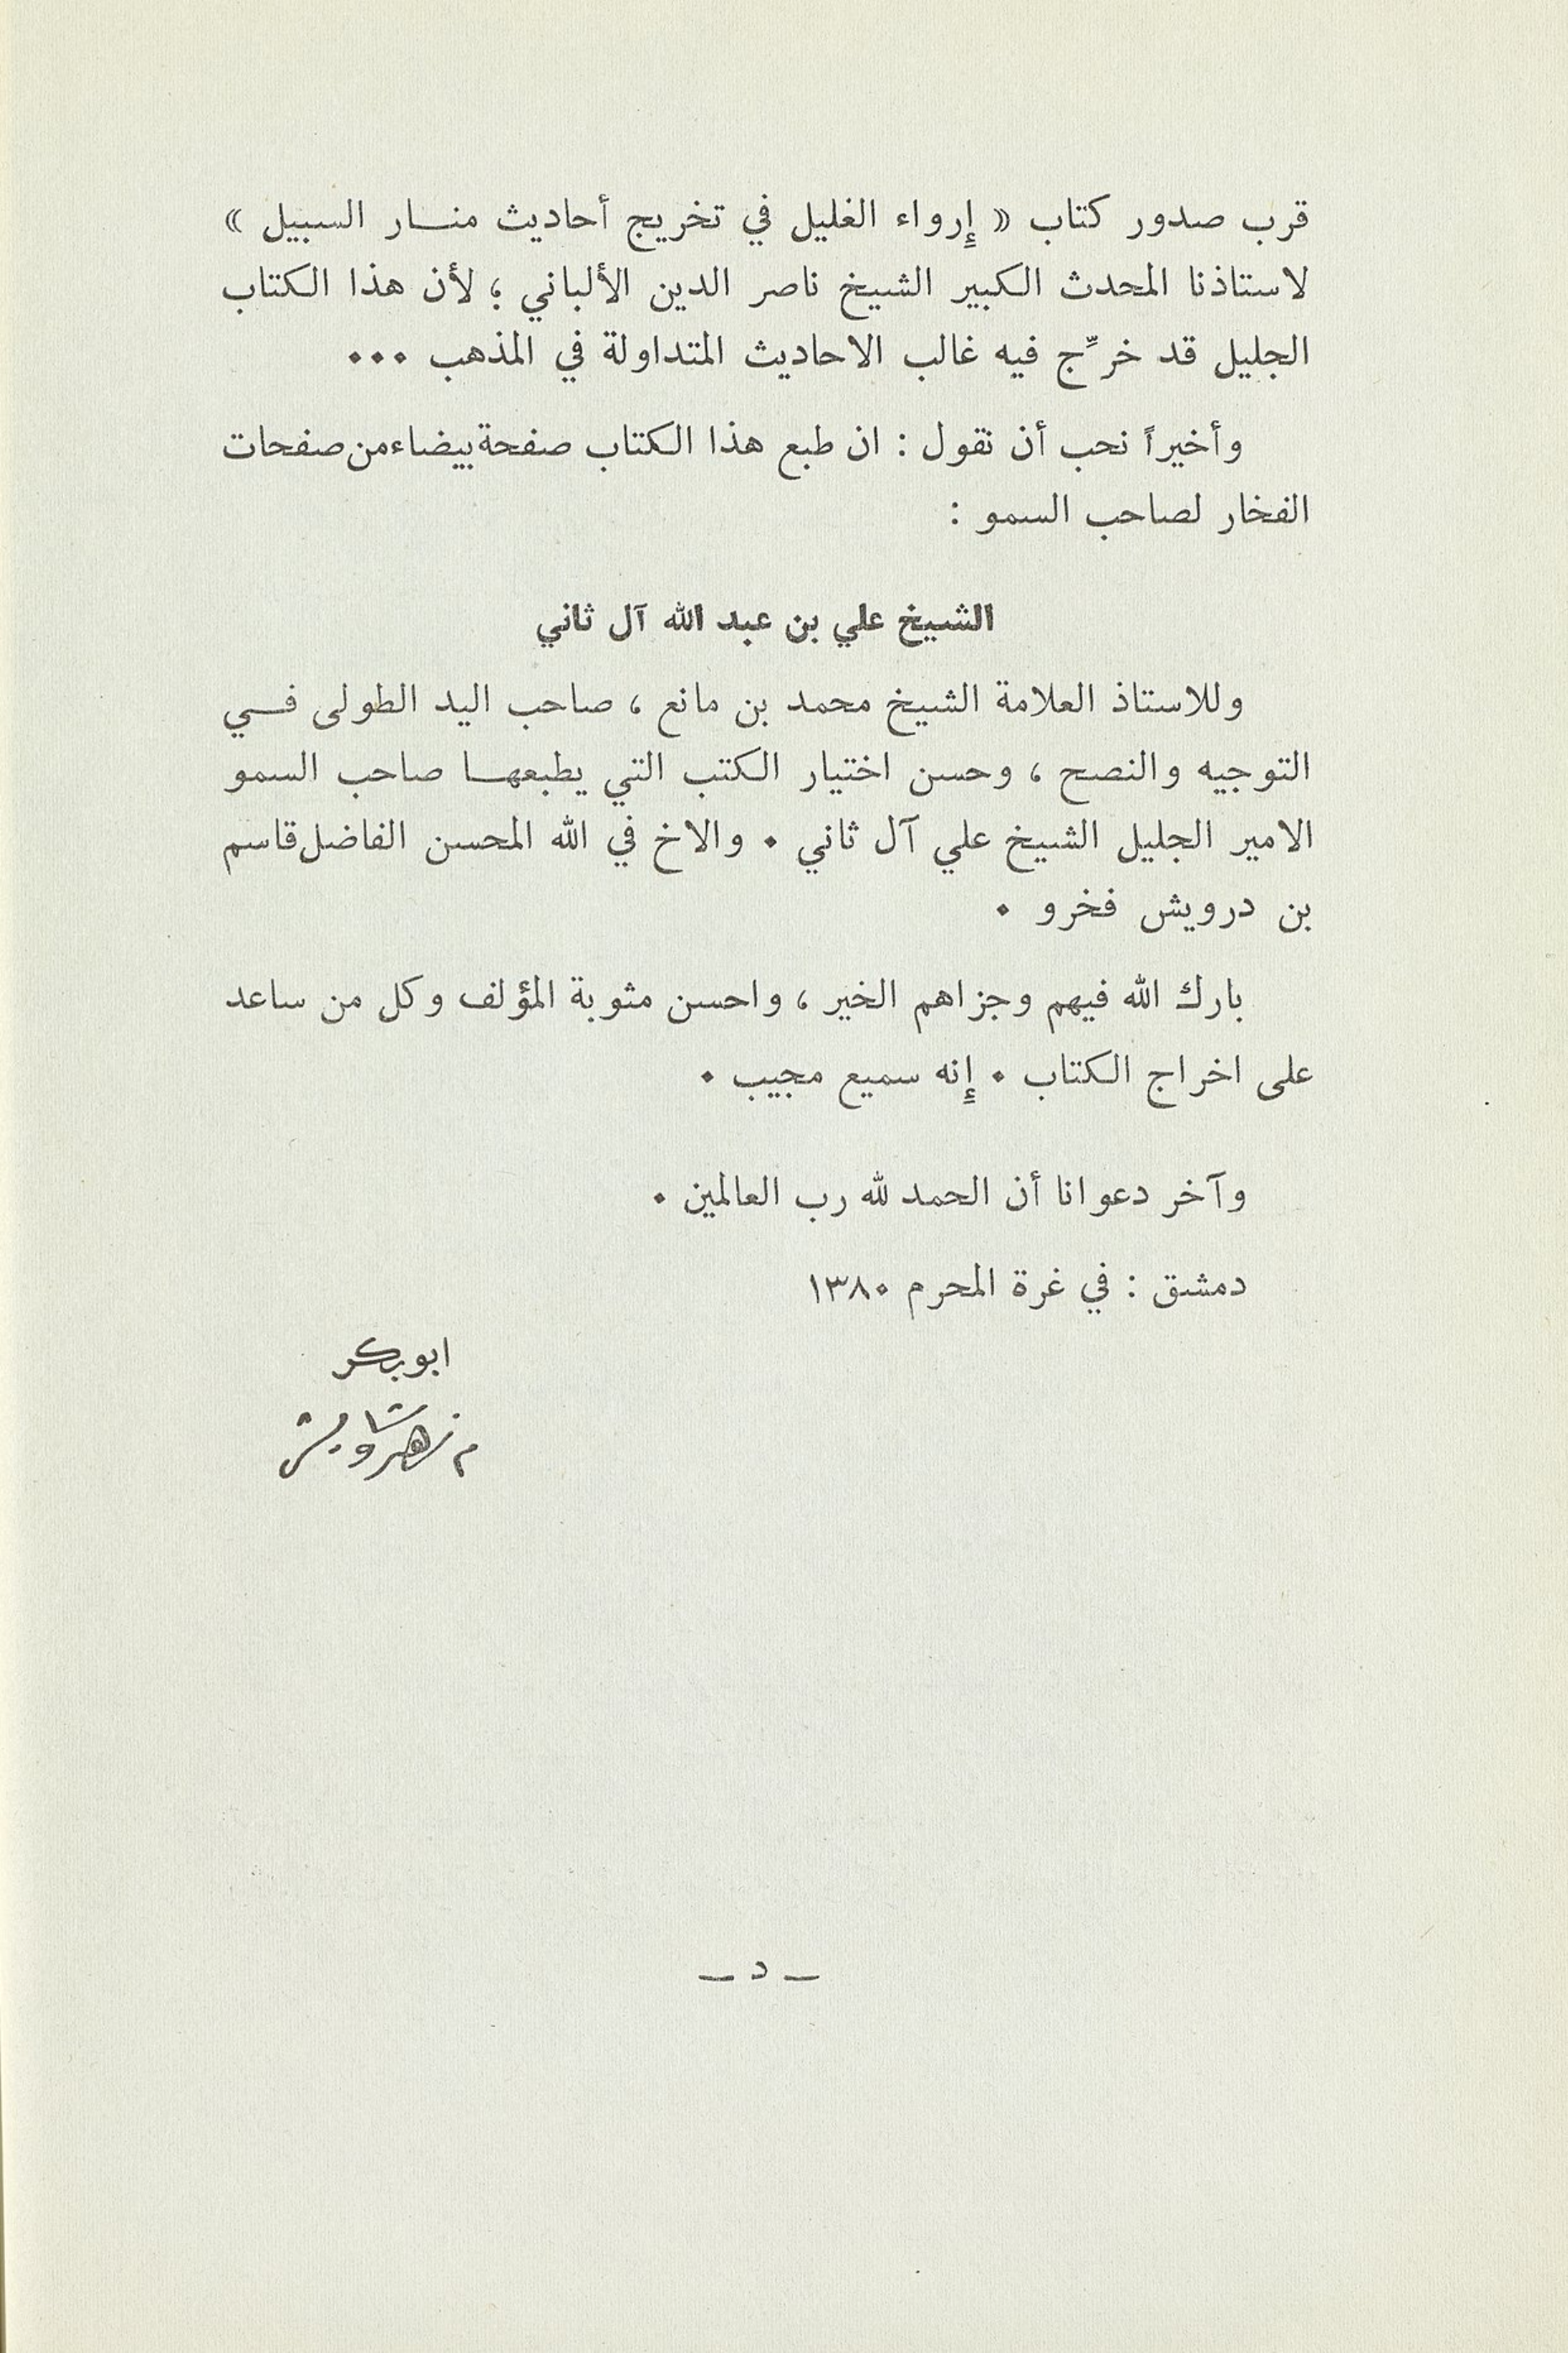 قرب صدور كتاب « إرواء الغليل في تخريج أحاديث منار السبيل »
لاستاذنا المحدث الكبير الشيخ ناصر الدين الألباني ؛ لأن هذا الكتاب
الجليل قد خرّج فيه غالب الاحاديث المتداولة في المذهب ...
وأخيراً نحب أن نقول : ان طبع هذا الكتاب صفحة بيضاء من صفحات
الفخار لصاحب السمو :
الشيخ علي بن عبد الله آل ثاني
وللاستاذ العلامة الشيخ محمد بن مانع ، صاحب اليد الطولى في
التوجيه والنصح ، وحسن اختيار الكتب التي يطبعها صاحب السمو
الامير الجليل الشيخ علي آل ثاني . والاخ في الله المحسن الفاضل قاسم
بن درويش فخرو .
بارك الله فيهم وجزاهم الخير ، واحسن مثوبة المؤلف وكل من ساعد
على اخراج الكتاب . إنه سميع مجيب .
وآخر دعوانا أن الحمد لله رب العالمين .
دمشق : في غرة المحرم ١٣٨٠
ابو بكر
م زهير شاويش
— د —